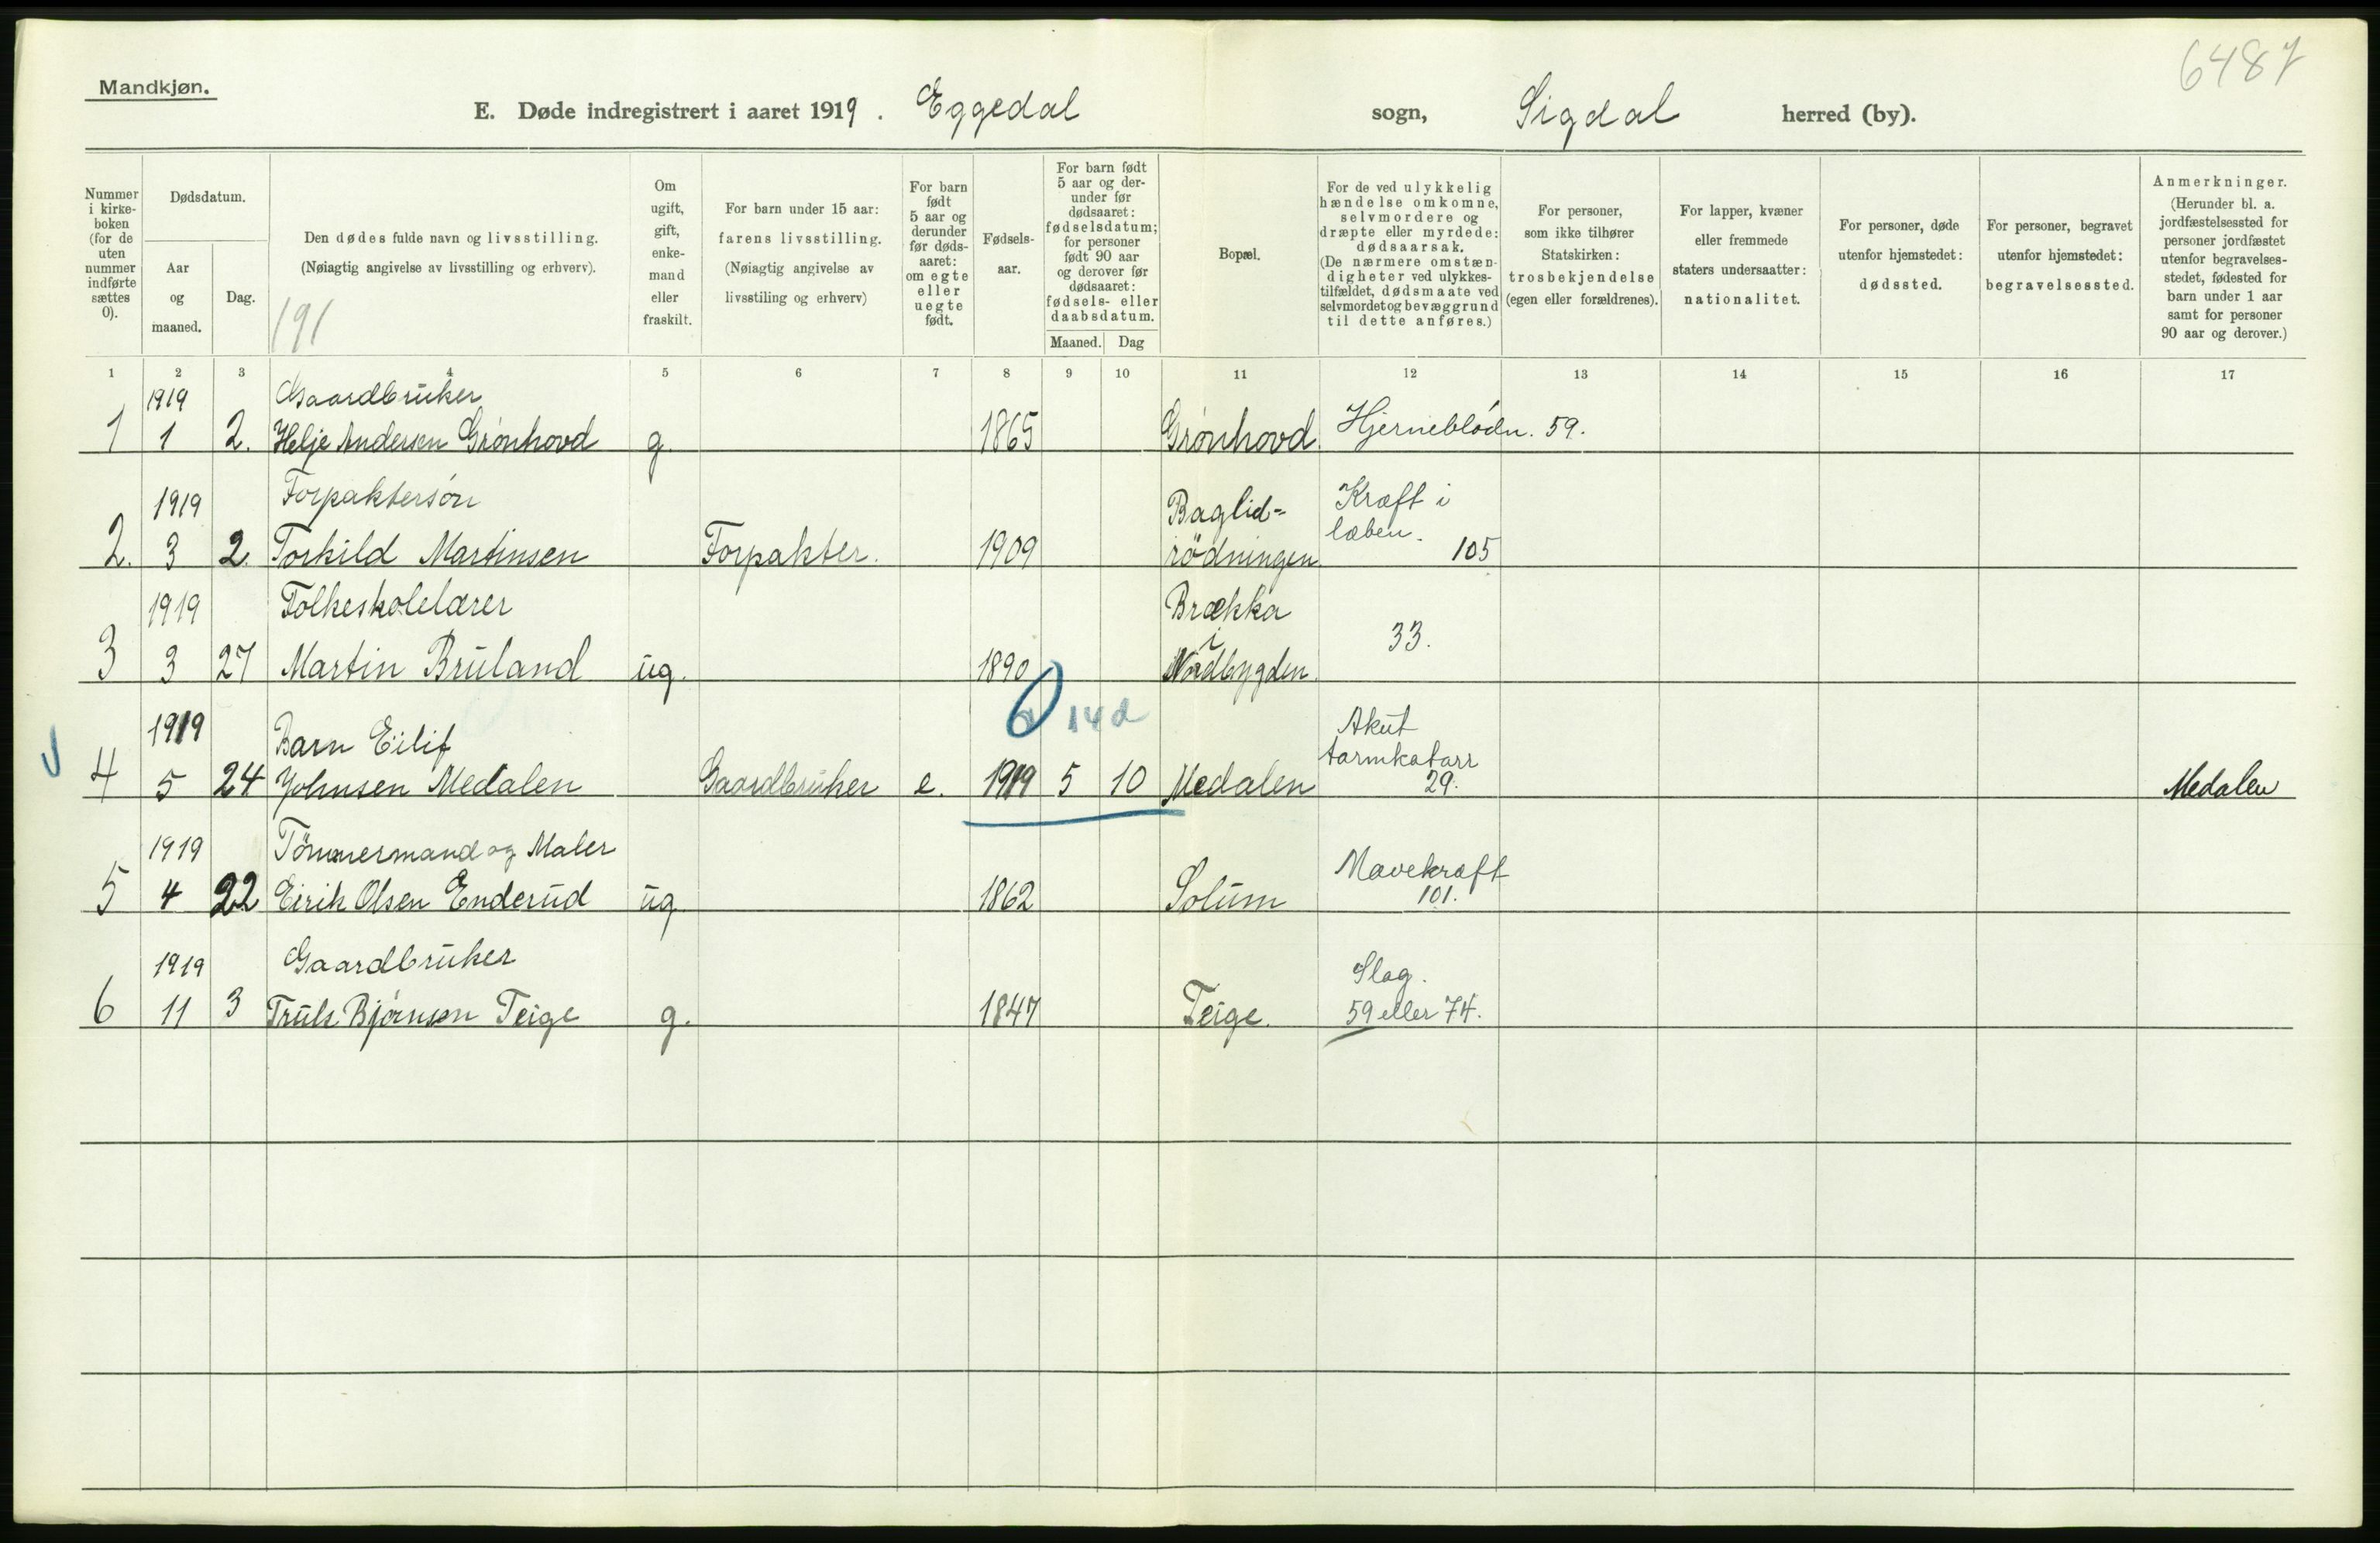 6487
Mandkjøn.
E. Døde indregistrert i aaret 1919. Eggedal sogn, Sigdal herred (by).
Nummer i kirke- boken (for de uten nummer indførte sættes 0).
Dødsdatum.
Aar og maaned.
Dag.
Den dødes fulde navn og livsstilling.
(Nøiagtig angivelse av livsstilling og erhverv).
191
Om ugift, gift, enke- mand eller fraskilt.
For barn under 15 aar: farens livsstilling.
(Nøiagtig angivelse av livsstiling og erhverv)
For barn født 5 aar og derunder før døds- aaret: om egte eller uegte født.
Fødsels- aar.
For barn født 5 aar og der- under før dødsaaret: fødselsdatum; for personer født 90 aar og derover før dødsaaret: fødsels- eller daabsdatum.
Maaned. Dag
Bopæl.
For de ved ulykkelig hændelse omkomne, selvmordere og dræpte eller myrdede: dødsaarsak.
(De nærmere omstæn- digheter ved ulykkes- tilfældet, dødsmaate ved selvmord og bevæggrund til dette anføres.)
For personer, som ikke tilhører Statskirken: trosbekjendelse (egen eller forældrenes).
For lapper, kvæner eller fremmede staters undersaatter: nationalitet.
For personer, døde utenfor hjemstedet: dødssted.
For personer, begravet utenfor hjemstedet: begravelsessted.
Anmerkninger.
(Herunder bl. a. jordfæstelsessted for personer jordfæstet utenfor begravelses- stedet, fødested for barn under 1 aar samt for personer 90 aar og derover.)
1 2 3 4 5 6 7 8 9 10 11 12 13 14 15 16 17
1919 Gaardbruker
1 1 2. Helje Andersen Grønhovd g. 1865 Grønhovd. Hjerneblødn. 59.
1919 Forpaktersøn Baglid- Kræft i
læben.
2. 3 2. Torkild Martinsen Forpakter. 1909 rödningen. 105
1919 Folkeskolelærer Brækka
i 33.
3 3 27 Martin Bruland ug. 1890 Nordbygden.
6 14 d
1919 Barn Eilif Akut
tarmkatarr
4 5 24 Johnsen Medalen Gaardbruker e. 1919 5 10 Medalen 29. Medalen
1919 Tömmermand og Maler Mavekræft
5 4 22 Eirik Olsen Enderud ug 1862 Solum 101.
1919 Gaardbruker Slag.
6 11 3 Truls Bjørnsen Teige g. 1847 Teige. 59 eller 74.